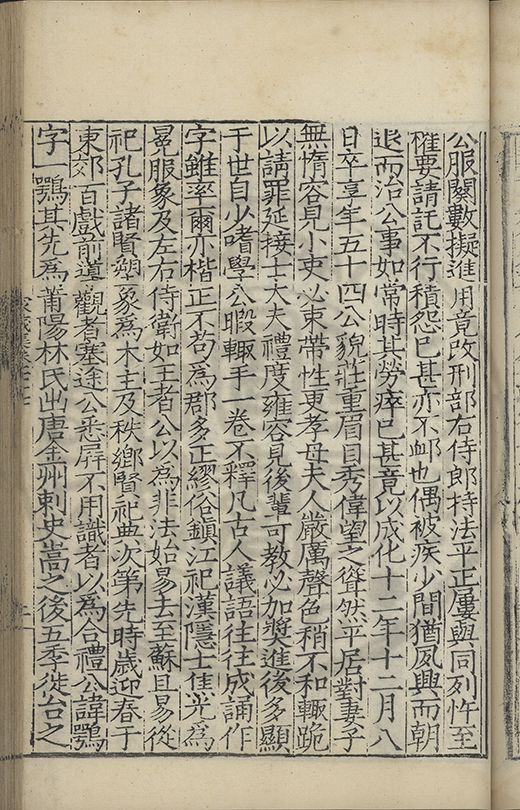 公服闋數擬進用竟改刑部右侍郎持法平正屢與同列忤至
權要請託不行積怨已甚亦不卹也偶被疾少間猶夙興而朝
退而治公事如常時其勞瘁已甚竟以成化十二年十二月八
日卒享年五十四公貌莊重眉目秀偉望之聳然平居對妻子
無惰容見小吏必束帶性更孝母夫人嚴厲聲色稍不和輒跪
以請罪延接士大夫禮度雍容見後輩可教必加奬進後多顯
于世自少嗜學公暇輒手一卷不釋凡古人議語往往成誦作
字雖率爾亦楷正不苟為郡多正繆俗鎮江祀漢隱士焦光為
冕服象及左右侍衛如王者公以為非法始易去至蘇且易從
祀孔子諸賢塑象為木主及秩鄉賢祀典次第先時歲迎春于
東郊百戲前道觀者塞途公悉屏不用識者以為合禮公諱鶚
字一鶚其先為莆陽林氏出唐金州刺史嵩之後五季徙台之